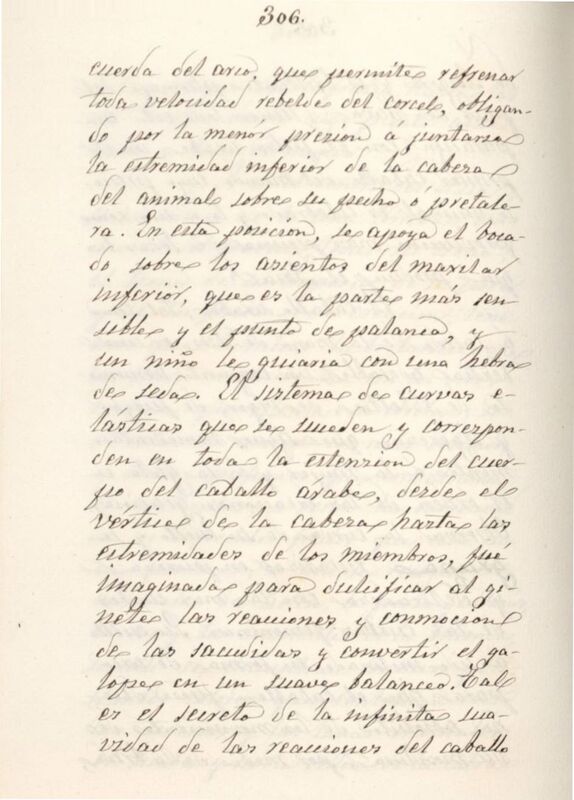 306.
cuerda del arco, que permite refrenar
toda velocidad rebelde del corcel, obligan-
do por la menor prezion á juntarse
la estremidad inferior de la cabeza
del animal sobre su pecho ó pretale-
ra. En esta posición, se apoya el boca-
do sobre los asientos del maxilar
inferior, que es la parte más sen-
sible y el punto de palanca, y
un niño le guiaria con una hebra
de seda. El sistema de curvas e-
lásticas que se sueden y correspon-
den en toda la estenzion del cuer-
po del caballo árabe, desde el
vértice de la cabeza hasta las
estremidades de los miembros, fué
imaginada para dulcificar al gi-
nete las reacciones y conmocion
de las sacudidas y convertir el ga-
lope en un suave balanceo. Tal
es el secreto de la infinita sua-
vidad de las reacciones del caballo